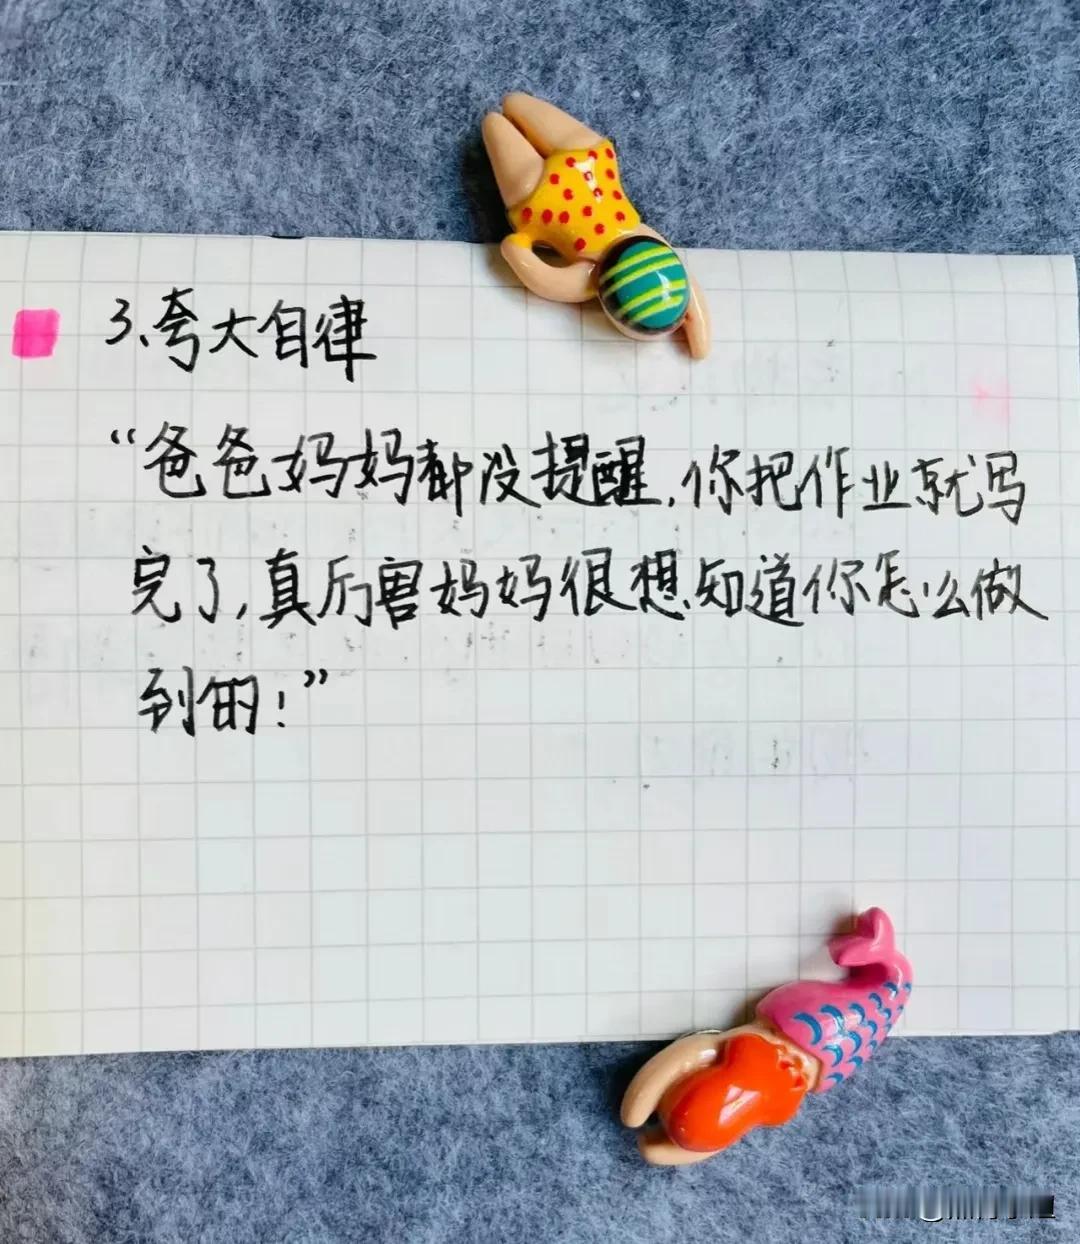 3、夸大自律
“爸爸妈妈都没提醒,你把作业就写
完了,真厉害妈妈很想知道你怎么做
到的!”